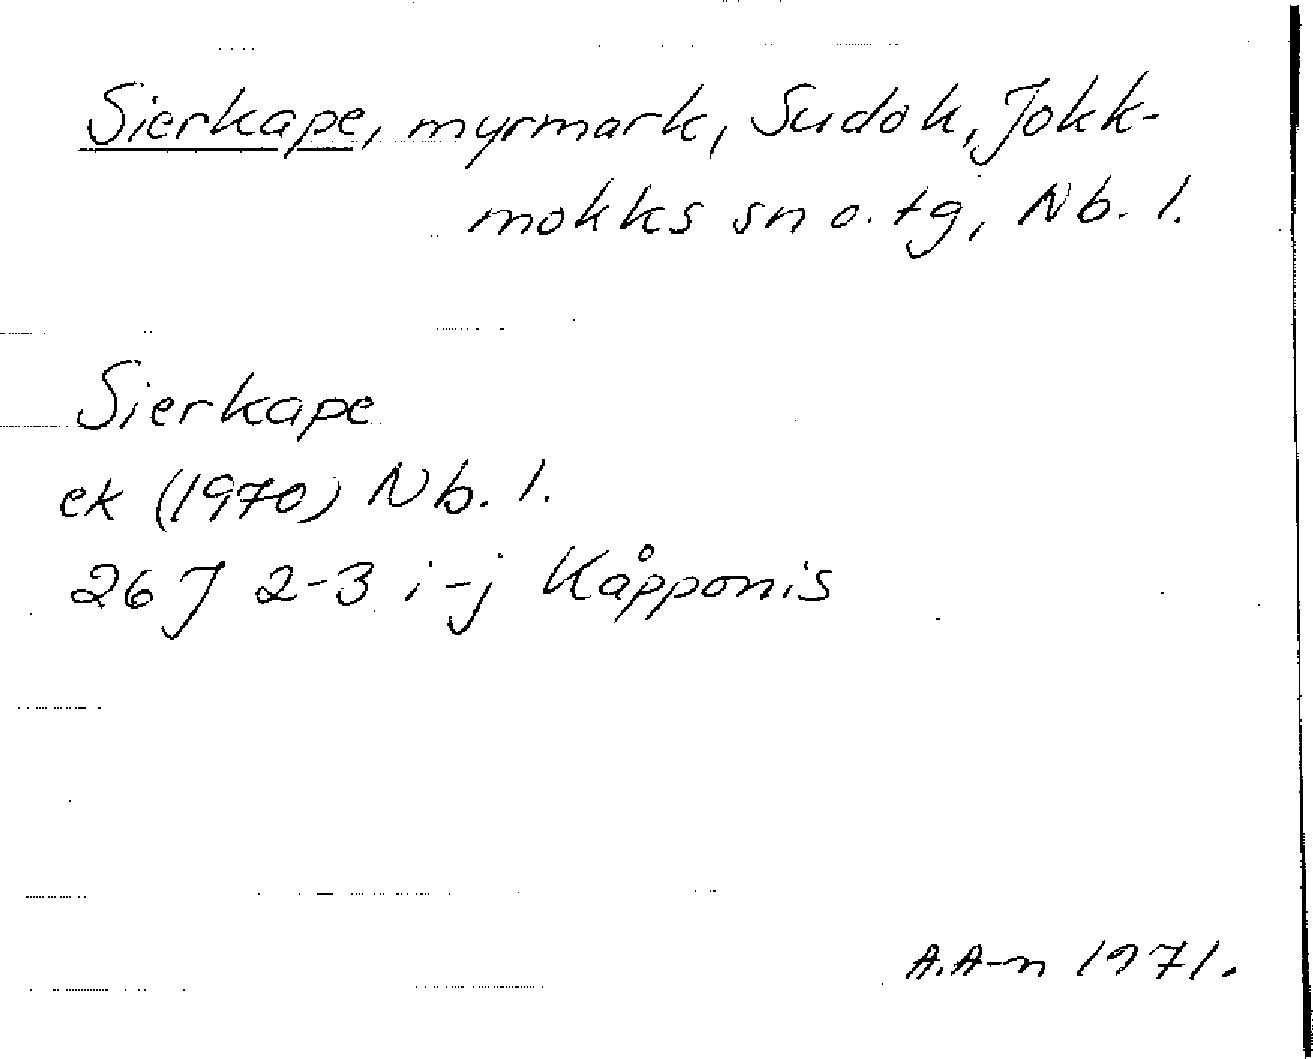 Sierkape, myrmark, Sudok, Jokk-
mokks sn o. tg, Nb. l.
Sierkape
ek (1970) Nb. l.
26 J 2-3 i-j Kåpponis
A.A-n 1971.